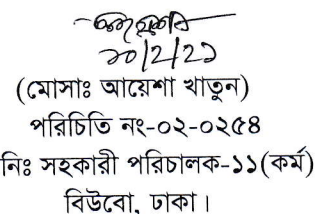 ২০/2/২১
(মোসাঃ আয়েশা খাতুন)
পরিচিতি নং-০২-০২৫৪
নিঃ সহকারী পরিচালক-১১(কর্ম)
বিউবো, ঢাকা।